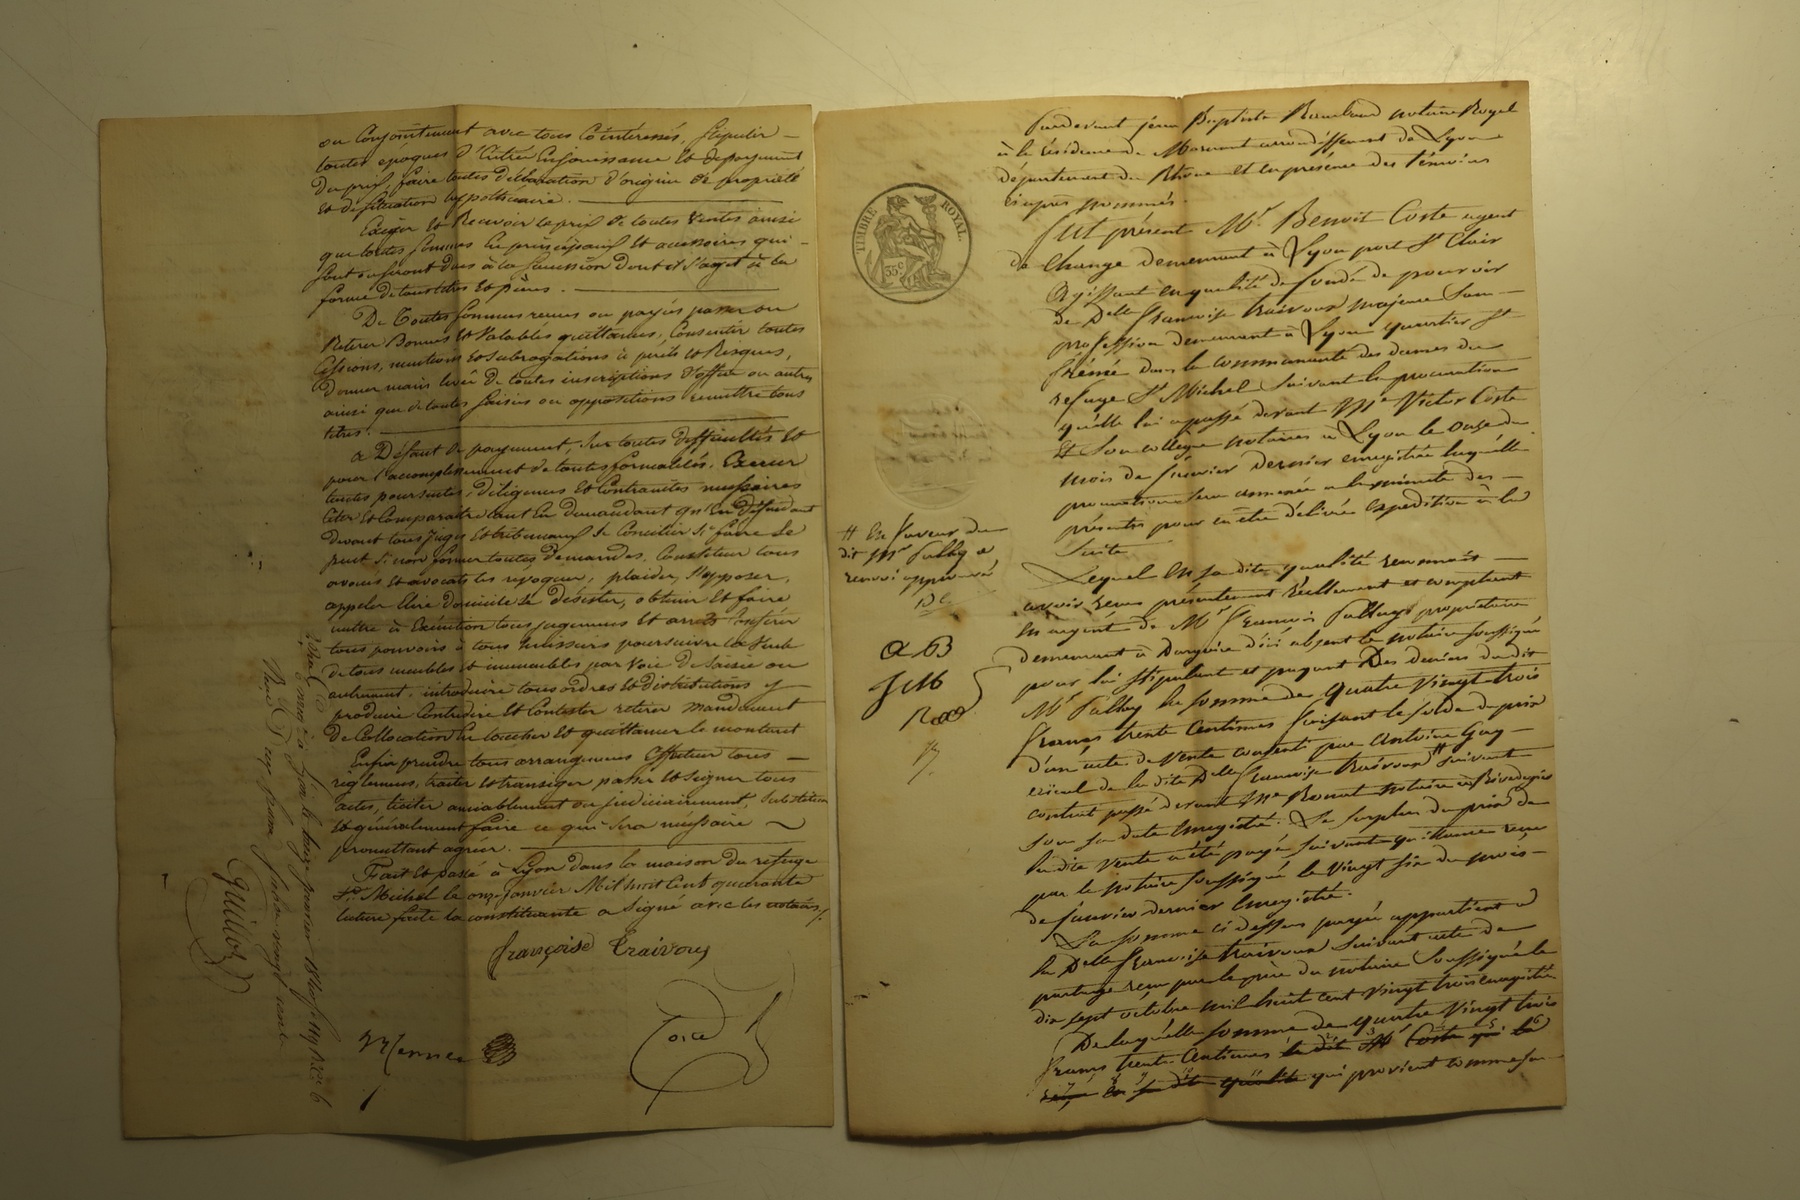 ou Conjointement avec tous Cointéressés, Stipuler
toutes époques d'Entrée En jouissance Et de payement
Du prix, faire toutes déclaration d'origine de propriété
Et de situation hypothécaire.
Exiger Et Recevoir le prix de toutes Ventes ainsi
que toutes sommes En principaux Et accessoires qui
sont ou seront dus à la succession dont il s'agit à la
forme de tous titres Et pièces.
De Toutes sommes reçues ou payées passer ou
Retirer Bonnes Et Valables quittances, Consentir toutes
Cessions, mentions Et subrogations à périls Et Risques,
Donner main levée De toutes inscriptions d'office ou autres
ainsi que de toutes saisies ou oppositions remettre tous
titres.
à Défaut de payement, sur toutes difficultés Et
pour l'accomplissement de toutes formalités. Exercer
toutes poursuites, Diligences Et Contraintes nécessaires
Citer Et Comparaitre tant En demandant qu'En défendant
devant tous juges Et tribunaux Se Concilier Si faire Se
peut Si non former toutes demandes. Constituer tous
avoués Et avocats les révoquer, plaider, S'opposer,
appeler Elire domicile Se désister, obtenir Et faire
mettre à Exécution tous jugemens Et arrêts Conférer
tous pouvoirs à tous huissiers poursuivre la Vente
de tous meubles Et immeubles par Voie De Saisie ou
autrement, introduire tous ordres Et distributions y
produire Contredire Et Contester retirer mandement
De Collocation En toucher Et quittancer le montant
Enfin prendre tous arrangemens Effectuer tous
réglemens, traiter Et transiger passer Et signer tous
actes, traiter amiablement ou judiciairement, Substituer
Et généralement faire ce qui sera nécessaire
promettant agréer.
Fait Et passé à Lyon dans la maison du refuge
St. Michel le onze janvier Mil huit Cent quarante
lecture faite la constituante a Signé avec les notaires
françoise Traivoux
Coste
à Lyon le
Reçu Deux francs
guillot
TIMBRE ROYAL.
35c
Pardevant jean Baptiste Rambaud notaire Royal
à la résidence de Mornant arrondissement de Lyon
département du Rhône et en présence des témoins
ci après nommés.
fut présent Mr. Benoit Coste agent
de Change demeurant à Lyon port St Clair
Agissant en qualité de fondé de pouvoir
de Delle françoise Traivoux majeure San
profession demeurant à Lyon quartier St
Irénée dans la communauté des dames du
refuge St Michel Suivant la procuration
qu'elle lui a passé devant Me Victor Coste
Et Son collègue notaires à Lyon le onze du
mois de janvier dernier enregistrée laquelle
procuration sera annexée à la minute des
présentes pour en être délivrée Expédition à la
Suite
Lequel En sa dite qualité reconnait
avoir reçu présentement réellement et comptant
En argent de Mr françois propriétaire
demeurant à d'ici absent le notaire soussigné
pour lui Stipulant et payant Des deniers dudit
Mr la somme de quatre Vingt trois
francs trente Centimes faisant le solde du prix
d'un acte de Vente consenti par Antoine Guy
aïeul de la dite Delle françoise Traivoux # suivant
contrat passé devant Me notaire à
Son sa date Enregistré. Le surplus du prix de
la dite Vente a été payé suivant quittance reçue
par le notaire soussigné le Vingt six du mois
de janvier dernier Enregistré.
La somme ci dessus payée appartient à
la Delle françoise Traivoux Suivant acte de
partage reçu par le père du notaire Soussigné le
dix sept octobre mil huit cent Vingt trois enregistré
De laquelle somme de quatre Vingt trois
francs trente Centimes le dit Mr Coste qui la
reçue En sa dite qualité qui provient comme
# En faveur du
dit Mr
renvoi approuvé